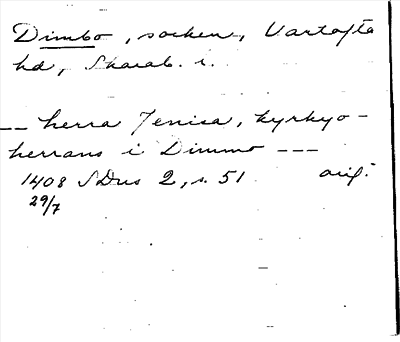 Dimbo, socken, Vartofta
hd, Skarab. l.
-- herra Jenisa, kyrkyo-
herrans i Dimmo ---
1408 SDns 2, s. 51 orig.
29/7